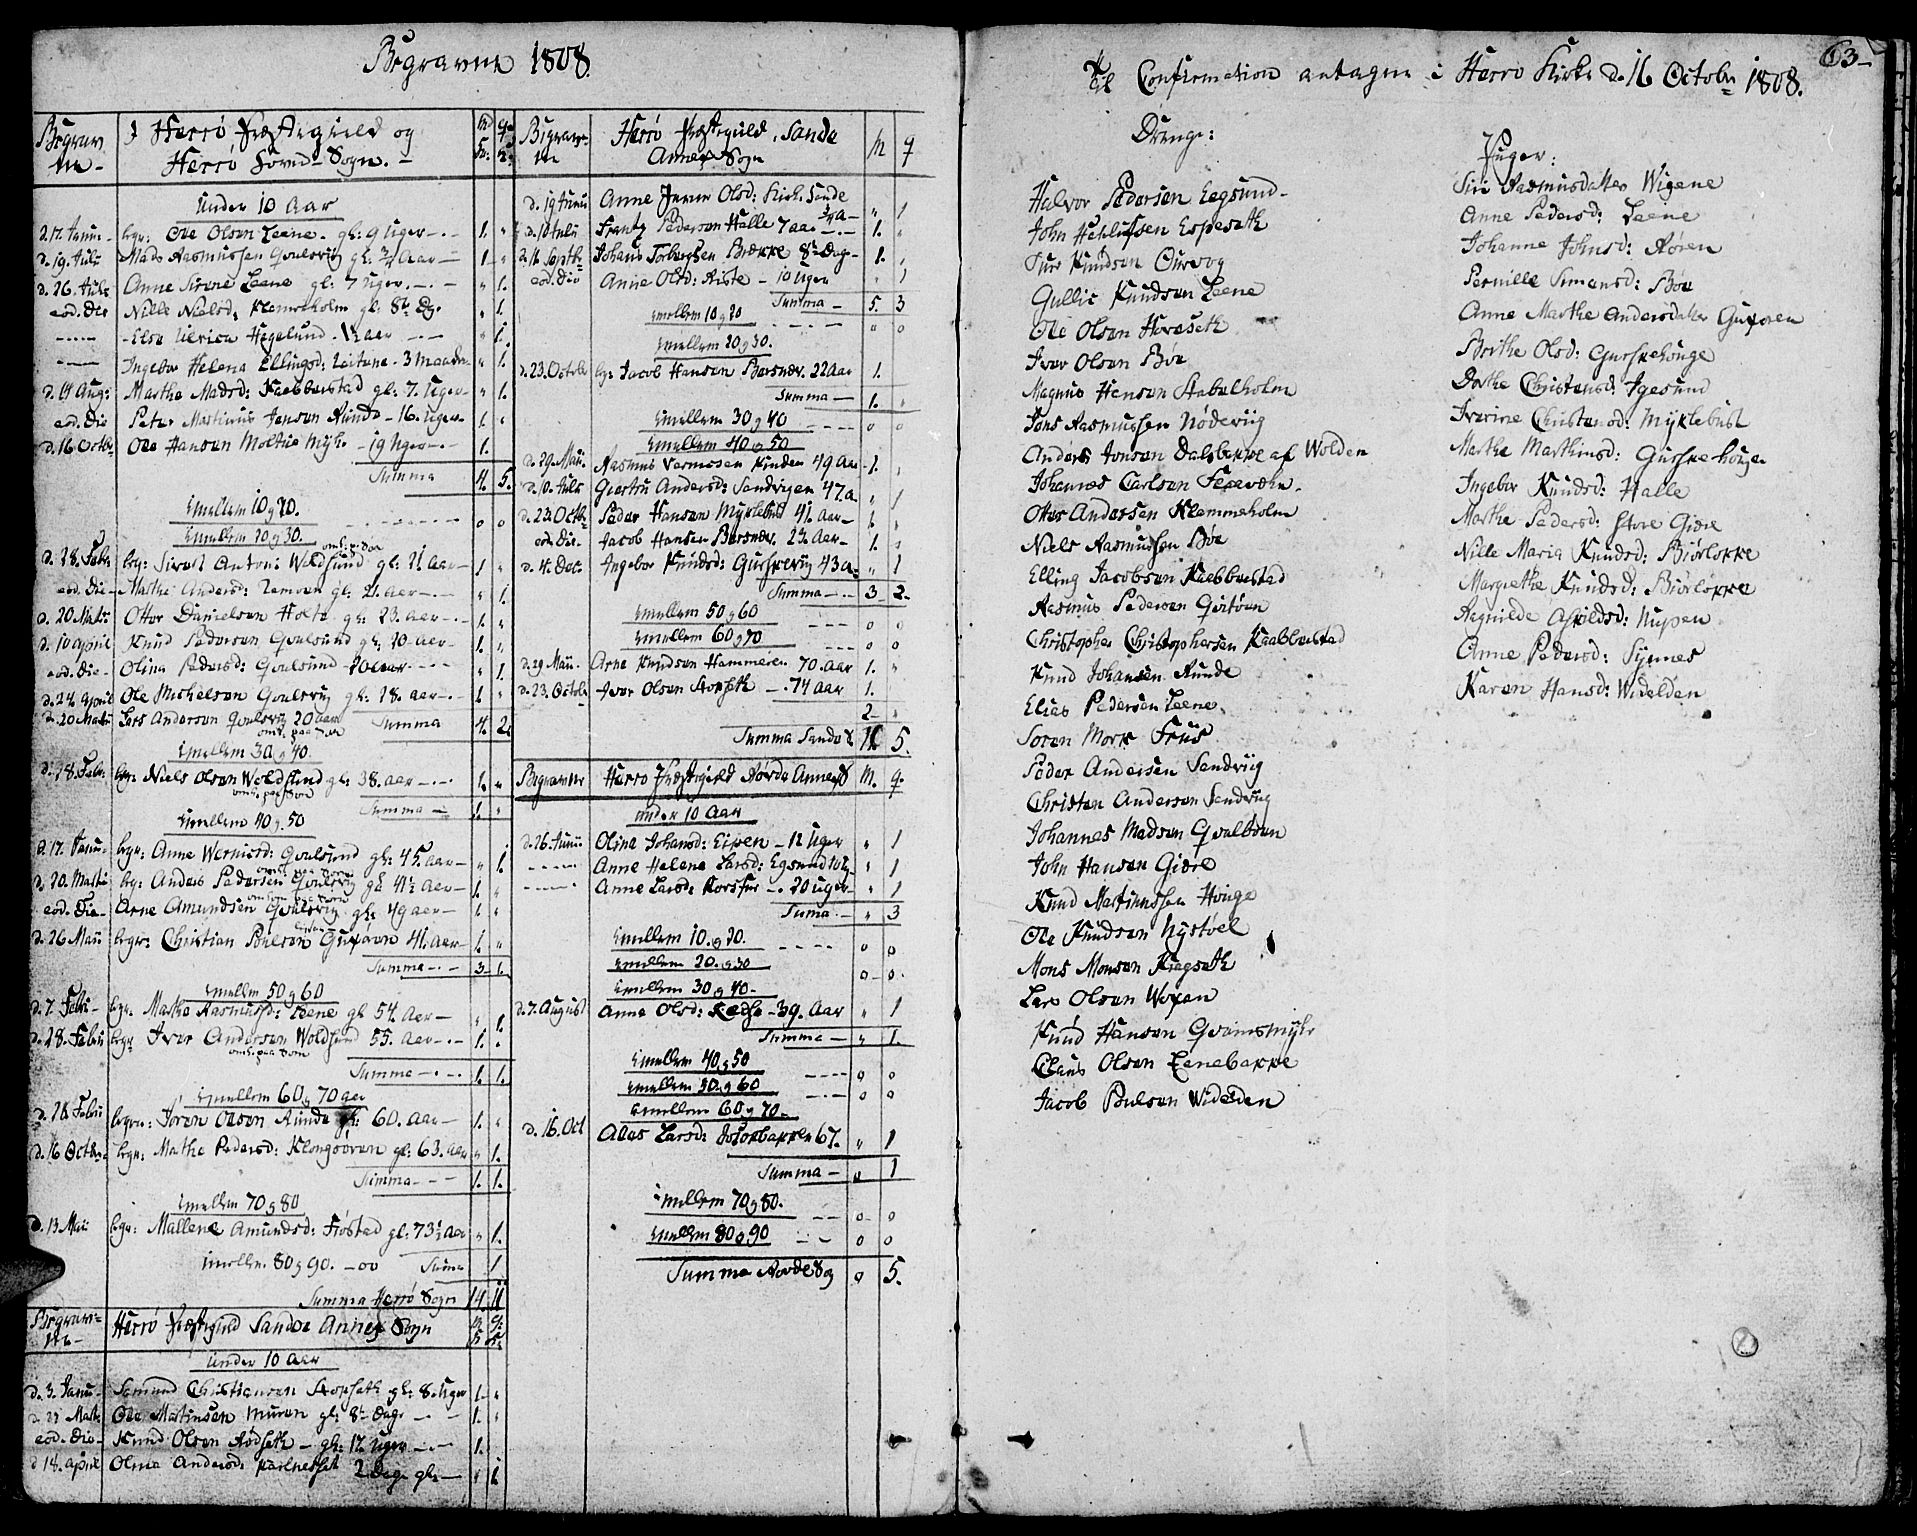 Begravne 1808.
Begrav
ne
I Herrø Præstegield og
Herrø Hoved-Sogn.
under 10 Aar
d. 17. Janu: begr: Ole Olsen Leene. gl: 9 Uger 1.
d. 19. Juli Mads Rasmussen Qvalsviig gl: 3/4 Aar 1
d. 26. Juli Anne Sirene Leene gl: 7 Uger 1.
eod. die Nille Nielsd: Klemetholm gl: 8te Dg. 1.
Else Ulrica Hegelund 1/2 aar 1.
Ingebor Helena Ellingsd: Leitune 3 maaneder 1.
d. 14 Aug: Marthe Madsd: Kaabberstad gl: 7. Uger 1.
eod. Die Peter Martinus Jensen Runde 16. Uger 1.
d. 16 Octb. Ole Hansen Moltue Myhr 19 Uger 1.
Summa 4. 5.
imellem 10 og 20.
imellem 20 og 30. 0 0
d. 28. Febr. begr: Sivert Anton: Woldsund gl: 21 Aar 1
omk. paa Søen
eod. Die Marthe Andersd: gl: 21. aar 1.
d. 20 Marti Otter Danielsen Holte gl: 23. aar 1.
d. 10 april Knud Pedersen Qvalsund gl: 20 aar 1.
eod. die Olina Pedersd: Qvalsund 20 aar 1
d. 24 April Ole Michelsen Qvalsviig gl: 28. aar 1
d. 20 Marti Lars Andersen Qvalsviig 20 aar
omk. paa Søen
Summa 4. 2.
imellem 30 og 40.
d. 28. Febr. begr: Niels Olsen Woldsund gl: 38. aar 1.
omk. paa Søen
Summa 1.
imellem 40 og 50
d. 17. Janu. begr: Anne Werniesd: Qvalsund gl: 45. aar 1.
d. 20. Marti begr: Anders Pedersen Qvalsviig gl 41 1/2 aar 1.
omk. paa Søen
eod. Die Arne Amundsen Qvalsviig gl: 49 aar 1.
omkom paa Søen
d. 26 Maii begr: Christian Poulsen Guxøren 41. aar 1.
Summa 3 1.
imellem 50 og 60
d. 7. Febr. begr: Marthe Rasmusd: Leene gl 54. aar 1.
d. 28. Febru begr Iver Andersen Woldsund 55. aar 1.
omk. paa Søen
Summa 1. 1.
imellem 60 og 70 aar
d. 28 Febru begr: Søren Olsen Runde gl: 60. aar 1.
d. 16 Octb. begr: Marthe Pedersd: Klongsøren gl: 63. aar 1.
Summa 1. 1.
imellem 70 og 80
d. 13. Mai begr: Mallene Amundsd: Frøstad gl: 73 1/2 Aar 1.
imellem. 80 og 90. 00 Suma 1
Summa Herrø Sogn 14. 11
Begrav
ne
Herrø Præstegield Sandøe Annex Sogn
under 10 Aar
d. 3. Janu. Samund Christiansen Stopseth gl: 8. Uger 1.
d. 27 Mart. Ole Martinsen Muren gl: 8te Dage 1.
eod. Die Knud Olsen Rødseth gl: 17. Uger 1.
d 18. april Olina Andersd: Karlnesset 2 Dage gl: 1
Begrav
ne
Herrø Præstegield. Sande
Annex Sogn
M q
d. 19 Junii Anne Iverine Olsd: Kirk. Sande 3/4 a 1
d. 10 Julii Frantz Pedersen Halle 7 aar 1.
d. 16 Septb. Johans Torbergsen Brække 8te Dag 1.
eod. die Anne Olsd: Riste 10 Uger 1
Summa 5. 3
imellem 10 og 20 0 0
imellem 20 og 30.
d. 23. Octob. bg: Jacob Hansen Borsnæs. 22 Aar 1.
Summa 1.
imellem 30 og 40 0 0
imellem 40 og 50
d. 29. Maii Rasmus Vermosen Kinden 49 Aar 1.
d. 10. Julii Giertru Andersd: Sandvigen 47 a 1
d. 23. Octb. Peder Hansen Myklebust 41. Aar 1.
eod. Die Jacob Hansen Borsnæs. 22 Aar 1.
d. 4. Dec. Ingebor Knudsd: Gurskeviig 43 a. 1
Summa 3 2
imellem 50 og 60 0 0
imellem 60 og 70 0 0
d. 29 Maii. Arne Knudsen Hammeren 70. Aar 1.
d. 23. Octob. Iver Olsen Stopseth 74 Aar 1.
2
Summa Sande S 11 5.
Begravne Herrø Præstegield Rovde Annex S M. q.
under 10 Aar
d. 26. Junii Olina Johansd: Eisen 12 Uger 1
Anne Helene Larsd: Egsund 10 Ug 1
Anne Larsd: Korsfur 20 Uger 1
Suma 3
imellem 10. og 20. 0 0
imellem 20. og 30 0 0
imellem 30 og 40
d. 7. August Anne Olsd: Kedse 39. Aar 1
Summa 1.
imellem 40 og 50 0 0
imellem 50. og 60 0 0
imellem 60 og 70
d. 16. Oct Larsd: 67. 1
Summa 1
imellem 70 og 80. 0 0
imellem 80 og 90 0 0
Summa Rovde Sog 0 5.
63
Til Confirmation antagne i Herrø Kirke d. 16 Octobr 1808.
Drenge:
Halvor Pedersen Eegsund
John Hehlufsen Espeseth
Ture Knudsen Ourvog
Gullic Knudsen Leene
Ole Olsen Horeseth
Iver Olsen Bøe
Magnus Hansen Stabelholm
Jens Rasmussen Nødeviig
Anders Jonsen Dalsbakke af Wolden
Johannes Carlsen
Otter Andersen Klemmeholm
Niels Rasmussen Bøe
Elling Jacobsen Kaabberstad
Rasmus Pedersen Qvitøen
Christopher Christophersen Kaabberstad
Knud Johansen Runde
Elias Pedersen Leene.
Søren Mork Friis
Peder Andersen Sandviig
Christen Andersen Sandviig
Johannes Madsen Qvaløen
John Hansen Gidre
Knud Martinussen Houge
Ole Knudsen Nystøel
Mons Monsen Kragseth
Lars Olsen Woxen
Knud Hansen Qvamsmyhr
Claus Olsen Leenebakke
Jacob Poulsen Widelden
Piger:
Siri Rasmusdatter Wigene
Anne Pedersd: Leene
Johanne Johnsd: Røren
Pernille Simensd: Bøe
Anne Marthe Andersdatter Guxøren
Berthe Olsd: Gurskehouge
Dorthe Christensd: Igesund
Iverine Christensd: Myklebust
Marthe Marthinsd: Gurskehouge
Ingebor Knudsd: Halle
Marthe Pedersd: Store Gidre
Nille Maria Knudsd: Biørløkke
Margrethe Knudsd: Biørløkke
Ragnilde Apoldsd: Nupen
Anne Pedersd: Synnes
Karen Hansd: Widelden